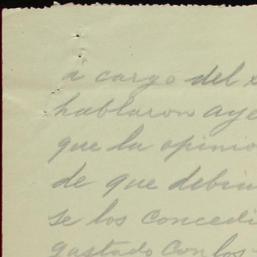 a cargo del
hablaron aye
que la opinio
de que debi
se los concedi
gastado con los